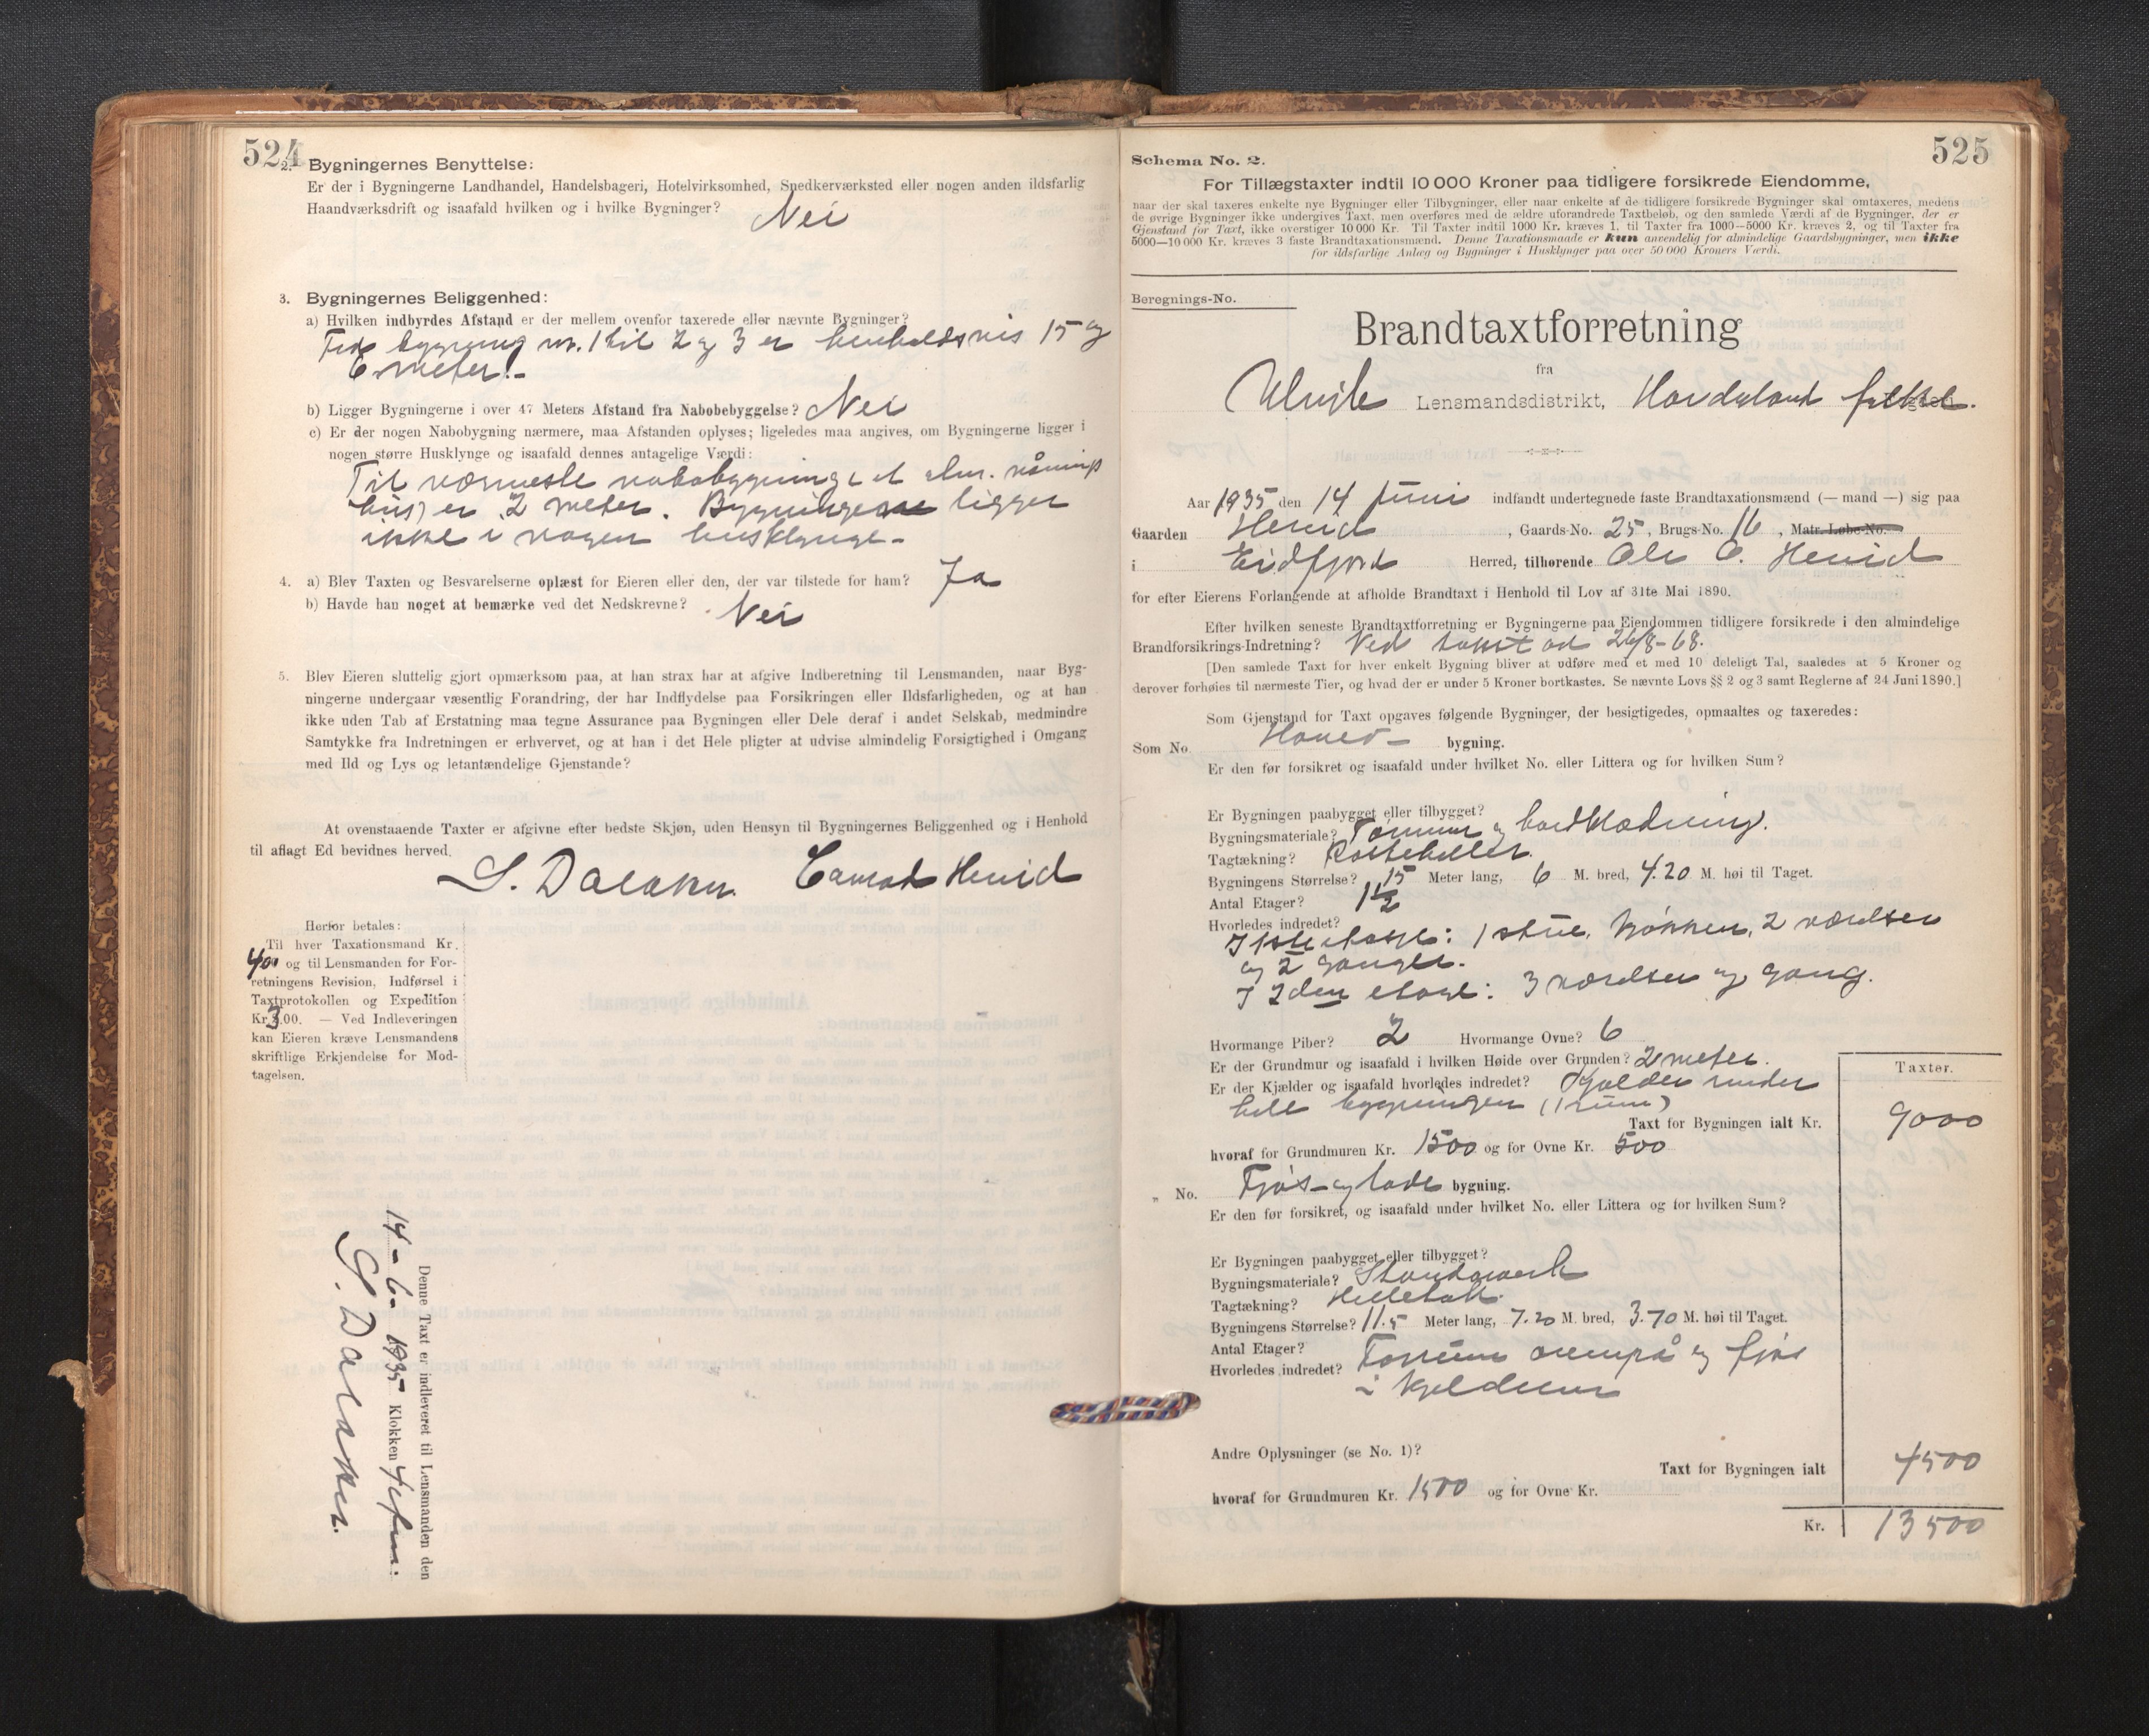 524
2. Bygningernes Benyttelse:
Er der i Bygningerne Landhandel, Handelsbageri, Hotelvirksomhed, Snedkerværksted eller nogen anden ildsfarlig
Haandværksdrift og isaafald hvilken og i hvilke Bygninger? Nei
3. Bygningernes Beliggenhed:
a) Hvilken indbyrdes Afstand er der mellem ovenfor taxerede eller nævnte Bygninger?
Fra bygning nr. 1 til 2 og 3 er henholdsvis 15 og
6 meter.-
b) Ligger Bygningerne i over 47 Meters Afstand fra Nabobebyggelse? Nei
c) Er der nogen Nabobygning nærmere, maa Afstanden oplyses; ligeledes maa angives, om Bygningerne ligger i
nogen større Husklynge og isaafald dennes antagelige Værdi:
Til nærmeste nabobygning (et alm. vånings
hus) er 2 meter. Bygningene ligger
ikke i nogen husklynge-
4. a) Blev Taxten og Besvarelserne oplæst for Eieren eller den, der var tilstede for ham? Ja
b) Havde han noget at bemærke ved det Nedskrevne? Nei
5. Blev Eieren sluttelig gjort opmærksom paa, at han strax har at afgive Indberetning til Lensmanden, naar Byg-
ningerne undergaar væsentlig Forandring, der har Indflydelse paa Forsikringen eller Ildsfarligheden, og at han
ikke uden Tab af Erstatning maa tegne Assurance paa Bygningen eller Dele deraf i andet Selskab, medmindre
Samtykke fra Indretningen er erhvervet, og at han i det Hele pligter at udvise almindelig Forsigtighed i Omgang
med Ild og Lys og letantændelige Gjenstande?
At ovenstaaende Taxter er afgivne efter bedste Skjøn, uden Hensyn til Bygningernes Beliggenhed og i Henhold
til aflagt Ed bevidnes herved.
S. Dalaker. Conrad Hereid
Herfor betales:
Til hver Taxationsmand Kr.
4,00 og til Lensmanden for For-
retningens Revision, Indførsel i
Taxtprotokollen og Expedition
Kr. 3.00. — Ved Indleveringen
kan Eieren kræve Lensmandens
skriftlige Erkjendelse for Mod-
tagelsen.
Denne Taxt er indleveret til Lensmanden den
14-6-1935 Klokken 4 efm:
S. Dalaker.
525
Schema No. 2.
For Tillægstaxter indtil 10 000 Kroner paa tidligere forsikrede Eiendomme,
naar der skal taxeres enkelte nye Bygninger eller Tilbygninger, eller naar enkelte af de tidligere forsikrede Bygninger skal omtaxeres, medens
de øvrige Bygninger ikke undergives Taxt, men overføres med de ældre uforandrede Taxtbeløb, og den samlede Værdi af de Bygninger, der er
Gjenstand for Taxt, ikke overstiger 10 000 Kr. Til Taxter indtil 1000 Kr. kræves 1, til Taxter fra 1000—5000 Kr. kræves 2, og til Taxter fra
5000—10 000 Kr. kræves 3 faste Brandtaxationsmænd. Denne Taxationsmaade er kun anvendelig for almindelige Gaardsbygninger, men ikke
for ildsfarlige Anlæg og Bygninger i Husklynger paa over 50 000 Kroners Værdi.
Beregnings-No.
Brandtaxtforretning
fra
Ulvik Lensmandsdistrikt, Hordaland fylke.
Aar 1935 den 14 Juni indfandt undertegnede faste Brandtaxationsmænd (— mand —) sig paa
Gaarden Hereid, Gaards-No. 25, Brugs-No. 16, Matr. Løbe-No.
i Eidfjord Herred, tilhørende Ole O. Hereid
for efter Eierens Forlangende at afholde Brandtaxt i Henhold til Lov af 31te Mai 1890.
Efter hvilken seneste Brandtaxtforretning er Bygningerne paa Eiendommen tidligere forsikrede i den almindelige
Brandforsikrings-Indretning? Ved takst av 26/8-68.
[Den samlede Taxt for hver enkelt Bygning bliver at udføre med et med 10 deleligt Tal, saaledes at 5 Kroner og
derover forhøies til nærmeste Tier, og hvad der er under 5 Kroner bortkastes. Se nævnte Lovs §§ 2 og 3 samt Reglerne af 24 Juni 1890.]
Som Gjenstand for Taxt opgaves følgende Bygninger, der besigtigedes, opmaaltes og taxeredes:
Som No. Hoved- bygning.
Er den før forsikret og isaafald under hvilket No. eller Littera og for hvilken Sum?
Er Bygningen paabygget eller tilbygget?
Bygningsmateriale? Tømmer og bordklædning.
Tagtækning?
Bygningens Størrelse? 15 Meter lang, 6 M. bred, 4.20 M. høi til Taget.
Antal Etager? 1 1/2
Hvorledes indredet?
I 1ste etasje: 1 stue, kjøkken, 2 værelser
og 2 ganger.
I 2den etasje: 3 værelser og gang.
Hvormange Piber? 2 Hvormange Ovne? 6
Er der Grundmur og isaafald i hvilken Høide over Grunden? 2 meter.
Er der Kjælder og isaafald hvorledes indredet? Kjelder under
hele bygningen (1 rum)
Taxter.
Taxt for Bygningen ialt Kr. 9000
hvoraf for Grundmuren Kr. 1500 og for Ovne Kr. 500
" No. Fjøs- og lade bygning.
Er den før forsikret, og isaafald under hvilket No. eller Littera og for hvilken Sum?
Er Bygningen paabygget eller tilbygget?
Bygningsmateriale? Standaverk
Tagtækning? Helletak.
Bygningens Størrelse? 11.5 Meter lang, 7.20 M. bred, 3.70 M. høi til Taget.
Antal Etager?
Hvorledes indredet? Forrum ovenpå og fjøs
i kjelderen
Andre Oplysninger (se No. 1)?
Taxt for Bygningen ialt 4500
hvoraf for Grundmuren Kr. 1500 og for Ovne Kr.
Kr. 13500